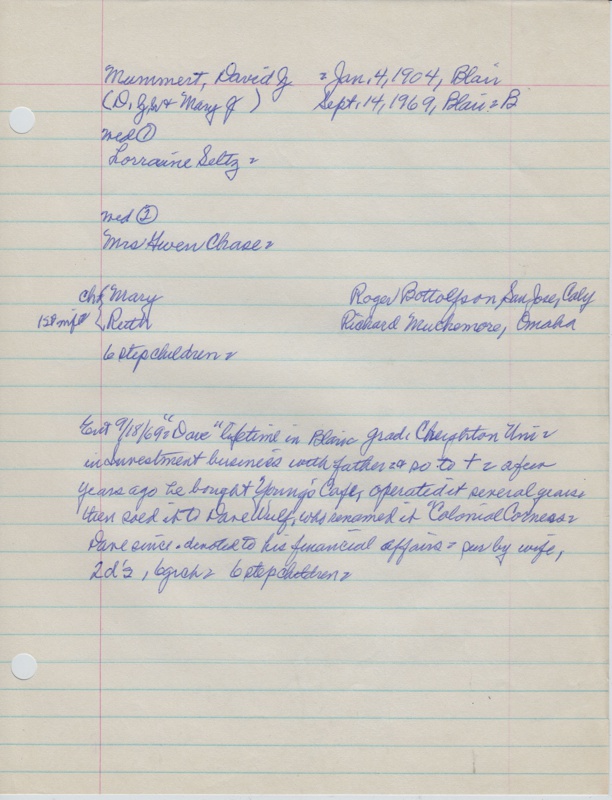 Mummert, David J = Jan. 4, 1904, Blair
(D. J. & Mary J) Sept. 14, 1969, Blair = B
wed ①
Lorraine Seltz =
wed ②
Mrs Gwen Chase =
ch Mary Roger Bottolfson San Jose, Calif
1st Ruth Richard Muckemore, Omaha
6 stepchildren =
Ent 9/18/69 = "Dave" lifetime in Blair grad. Creighton Uni =
in investment business with father = & so to + = a few
years ago he bought Young's Cafe, operated it several years =
then sold it to Dave Wulf, who renamed it "Colonial Corness =
Dave since devoted to his financial affairs = sur by wife,
2 d's, 6 grch = 6 stepchildren =